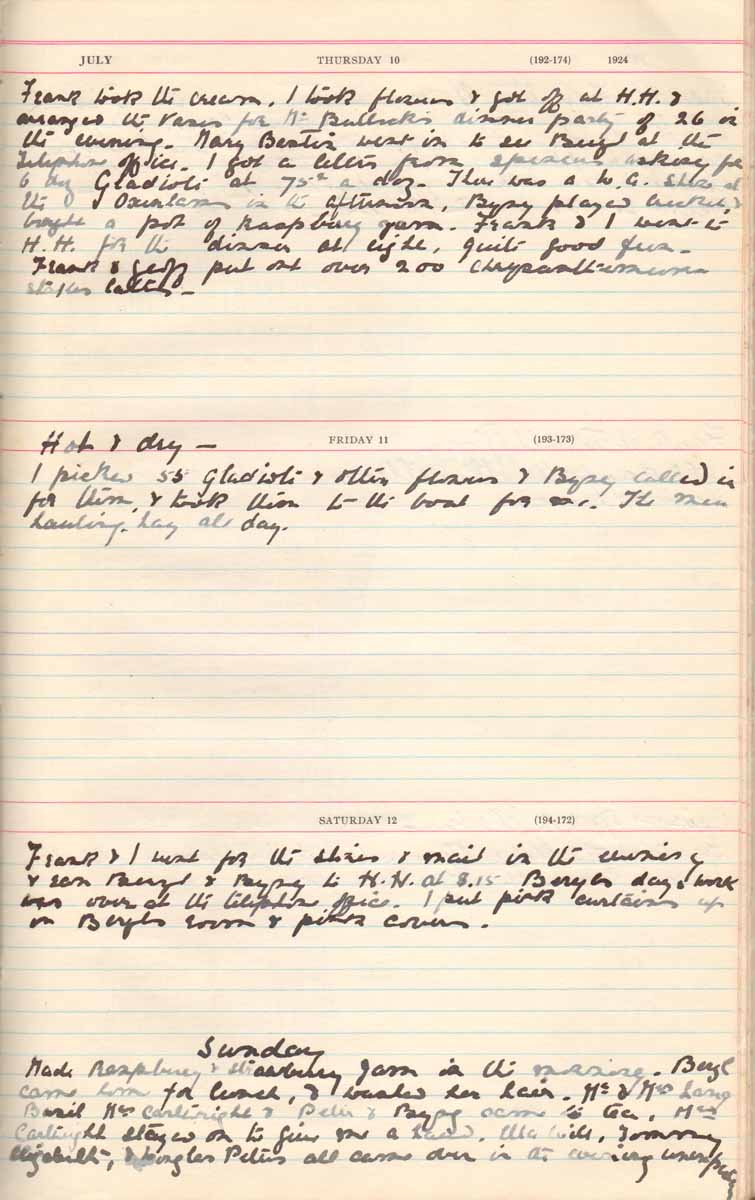 JULY THURSDAY 10 (192-174) 1924
Frank took the cream. I took flowers & got off at H.H. &
arranged the vases for Mr Bullocks dinner party of 26 in
the evening. Mary went in to see Beryl at the
Telephone office. I got a letter from asking for
6 doz Gladioli at 75c a doz. There was a
the & in the afternoon, Bypsy played cricket, &
bought a pot of raspberry jam. Frank & I went to
H.H. for the dinner at eight, quite good fun -
Frank & Geoff put out over 200 chrysanthemums
latter -
FRIDAY 11 (193-173)
Hot & dry -
I picked 55 Gladioli & other flowers & Bypsy called in
for them, & took them to the boat for me. The men
hauling hay all day.
SATURDAY 12 (194-172)
Frank & I went for the & mail in the evening
& ran Beryl & Bypsy to H.H. at 8.15 Beryls days work
was over at the telephone office. I put pink curtains up
in Beryls room & pink covers.
Sunday
Made Raspberry & strawberry Jam in the morning. Beryl
came home for lunch, & washed her hair. Mr & Mrs
Basil Mrs Cartwright & Peter & Bypsy came to tea, Mrs
Cartwright stayed on to give me a hand. Tommy
Elizabeth, & Douglas Peters all came over in the evening